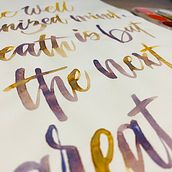 well
nized mind,
eath is but
the next
great